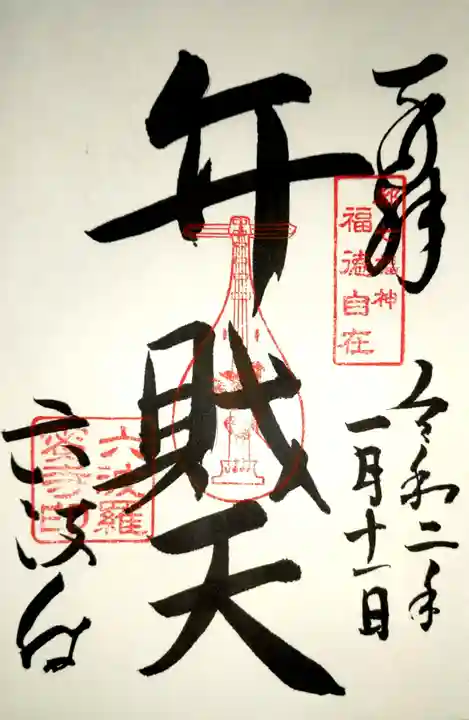 奉拝
都七福神
福徳自在
令和二年
一月十一日
弁財天
六波羅
密寺印
六波羅